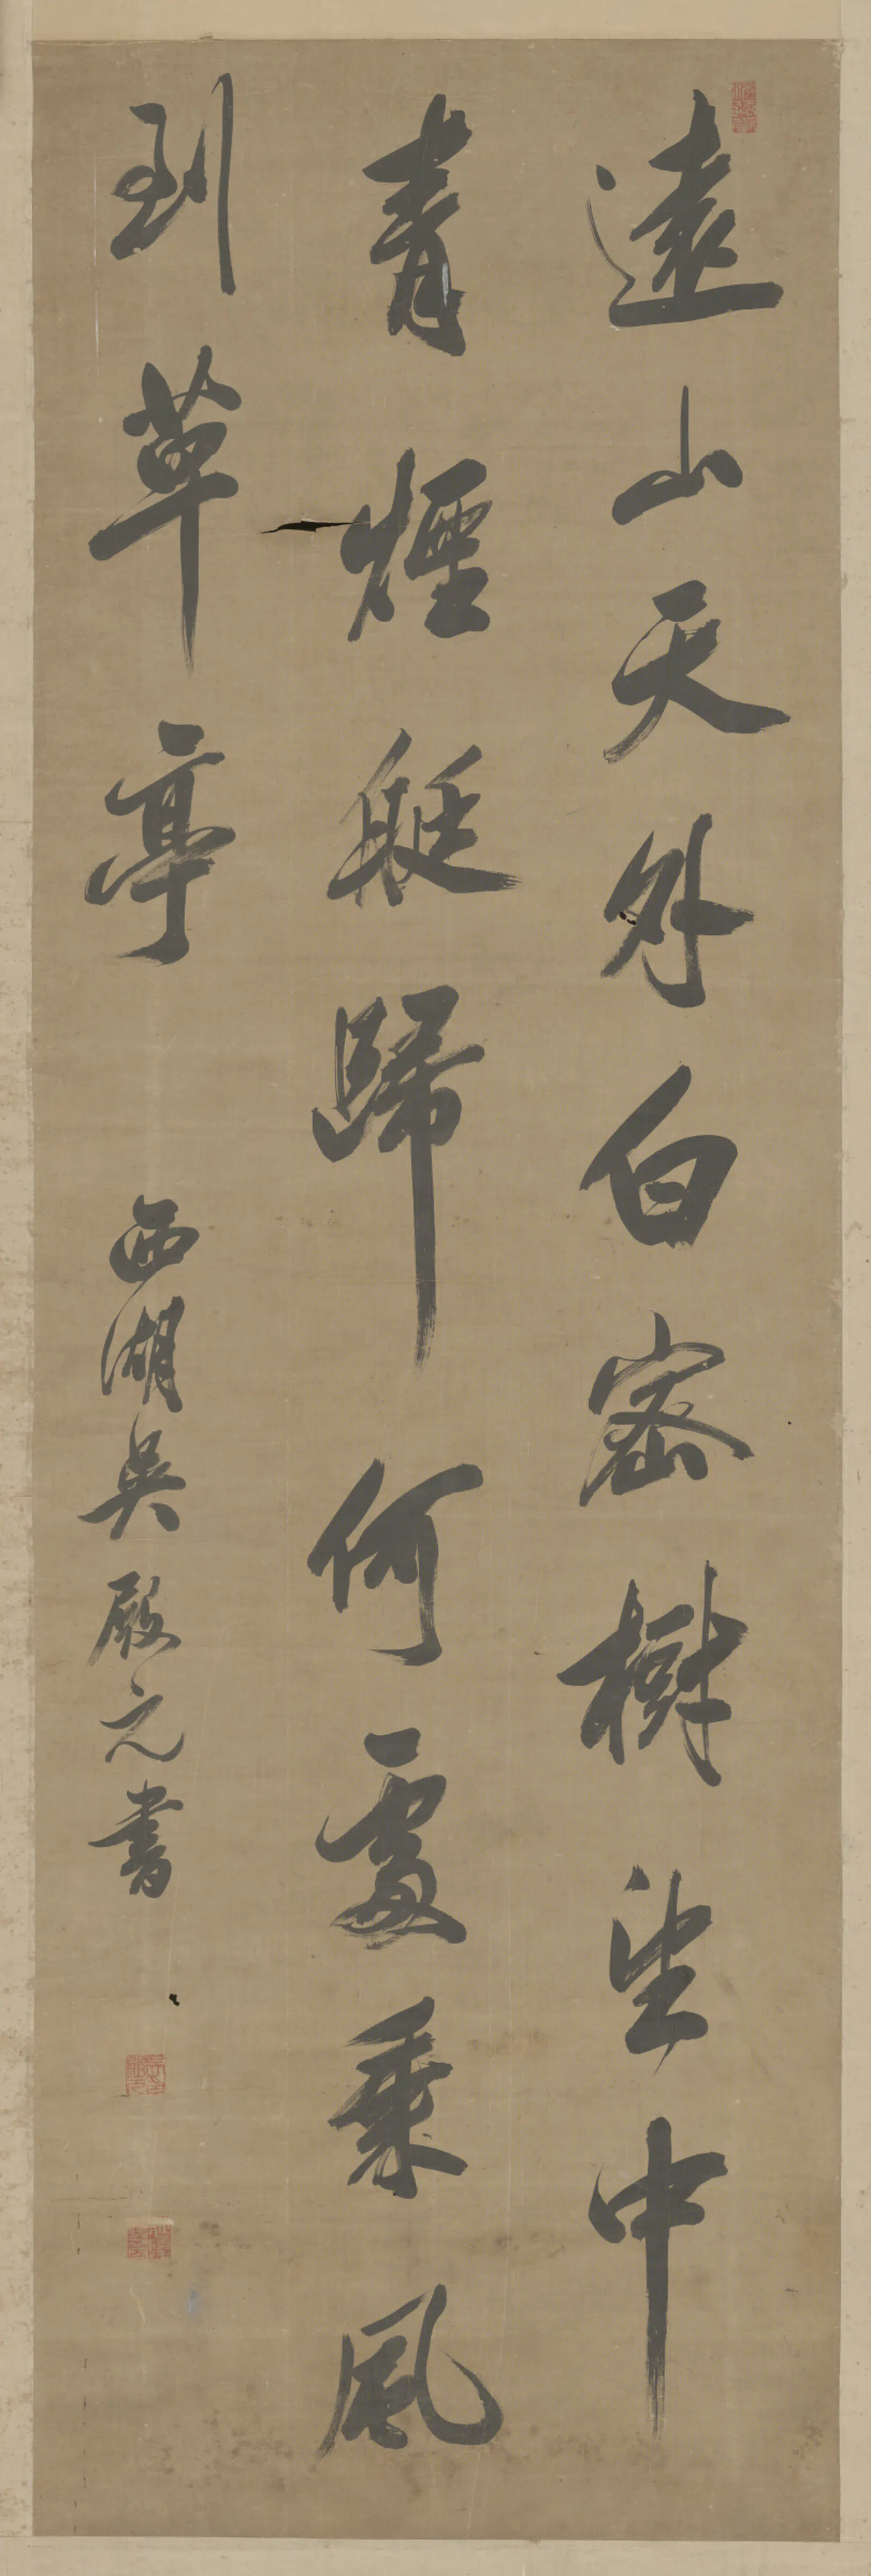 遠山天外白密樹望中
青煙艇歸何處乘風
到草亭
西湖吳殿元書